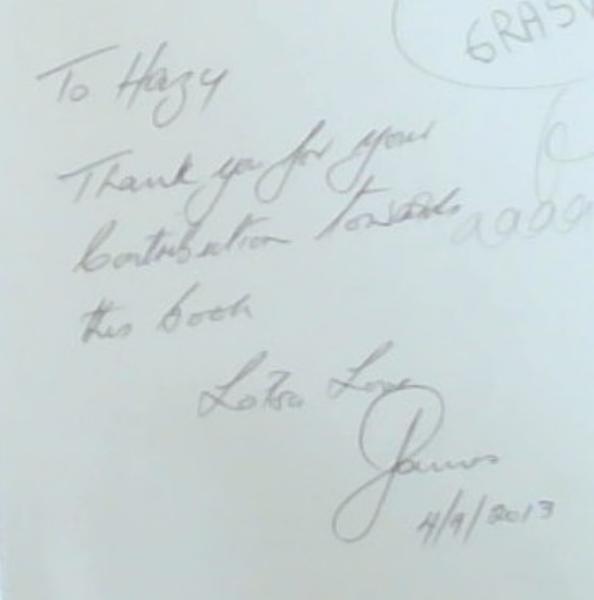 To Hazy
Thank you for your
Contribution towards
this book
Lotsa Love
James
4/9/2013
GRAS